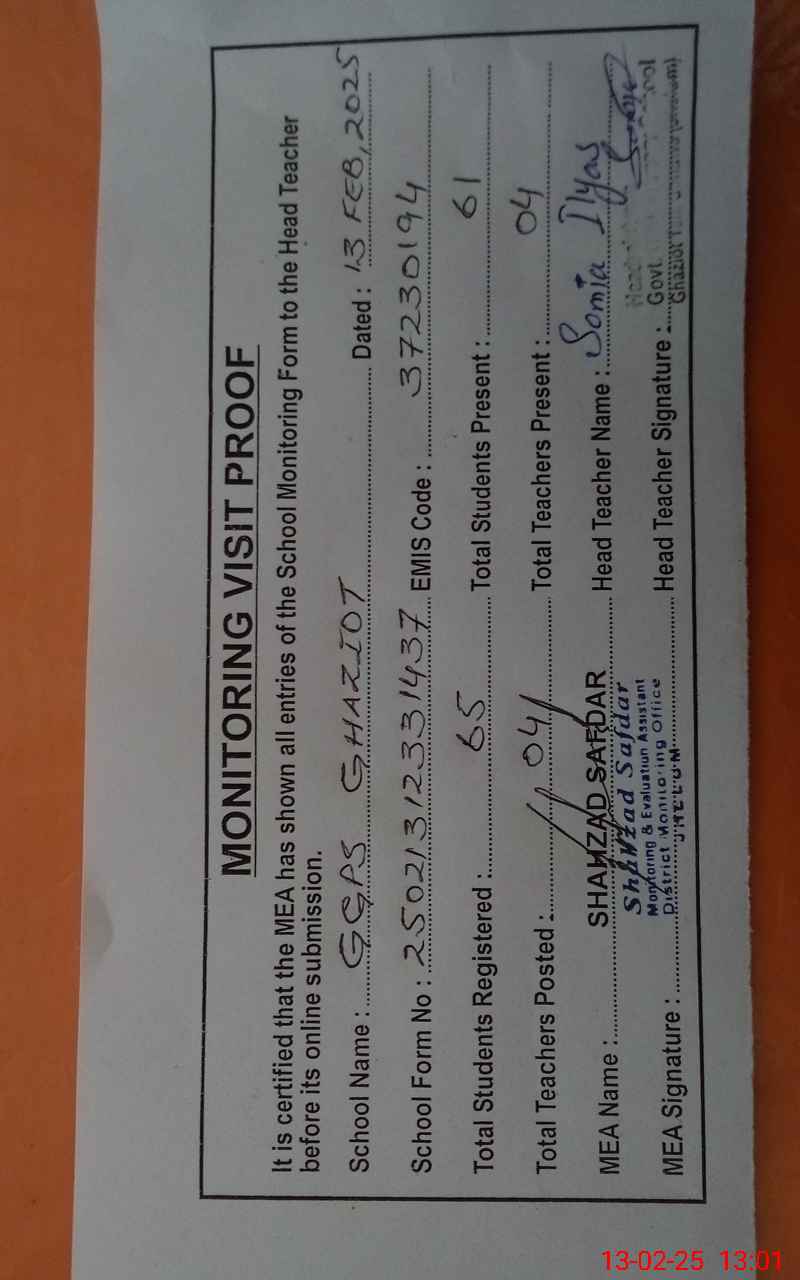 MONITORING VISIT PROOF
It is certified that the MEA has shown all entries of the School Monitoring Form to the Head Teacher
before its online submission.
School Name : GGPS GHAZIOT Dated : 13 FEB, 2025
School Form No : 25021312331437 EMIS Code : 37230194
Total Students Registered : 65 Total Students Present : 61
Total Teachers Posted : 04 Total Teachers Present : 04
MEA Name : SHAHZAD SAFDAR Head Teacher Name : Somia Ilyas
Shahzad Safdar
Monitoring & Evaluation Assistant
District Monitoring Office
JHELUM
MEA Signature : Head Teacher Signature :
Govt.
Ghaziot
13-02-25 13:01